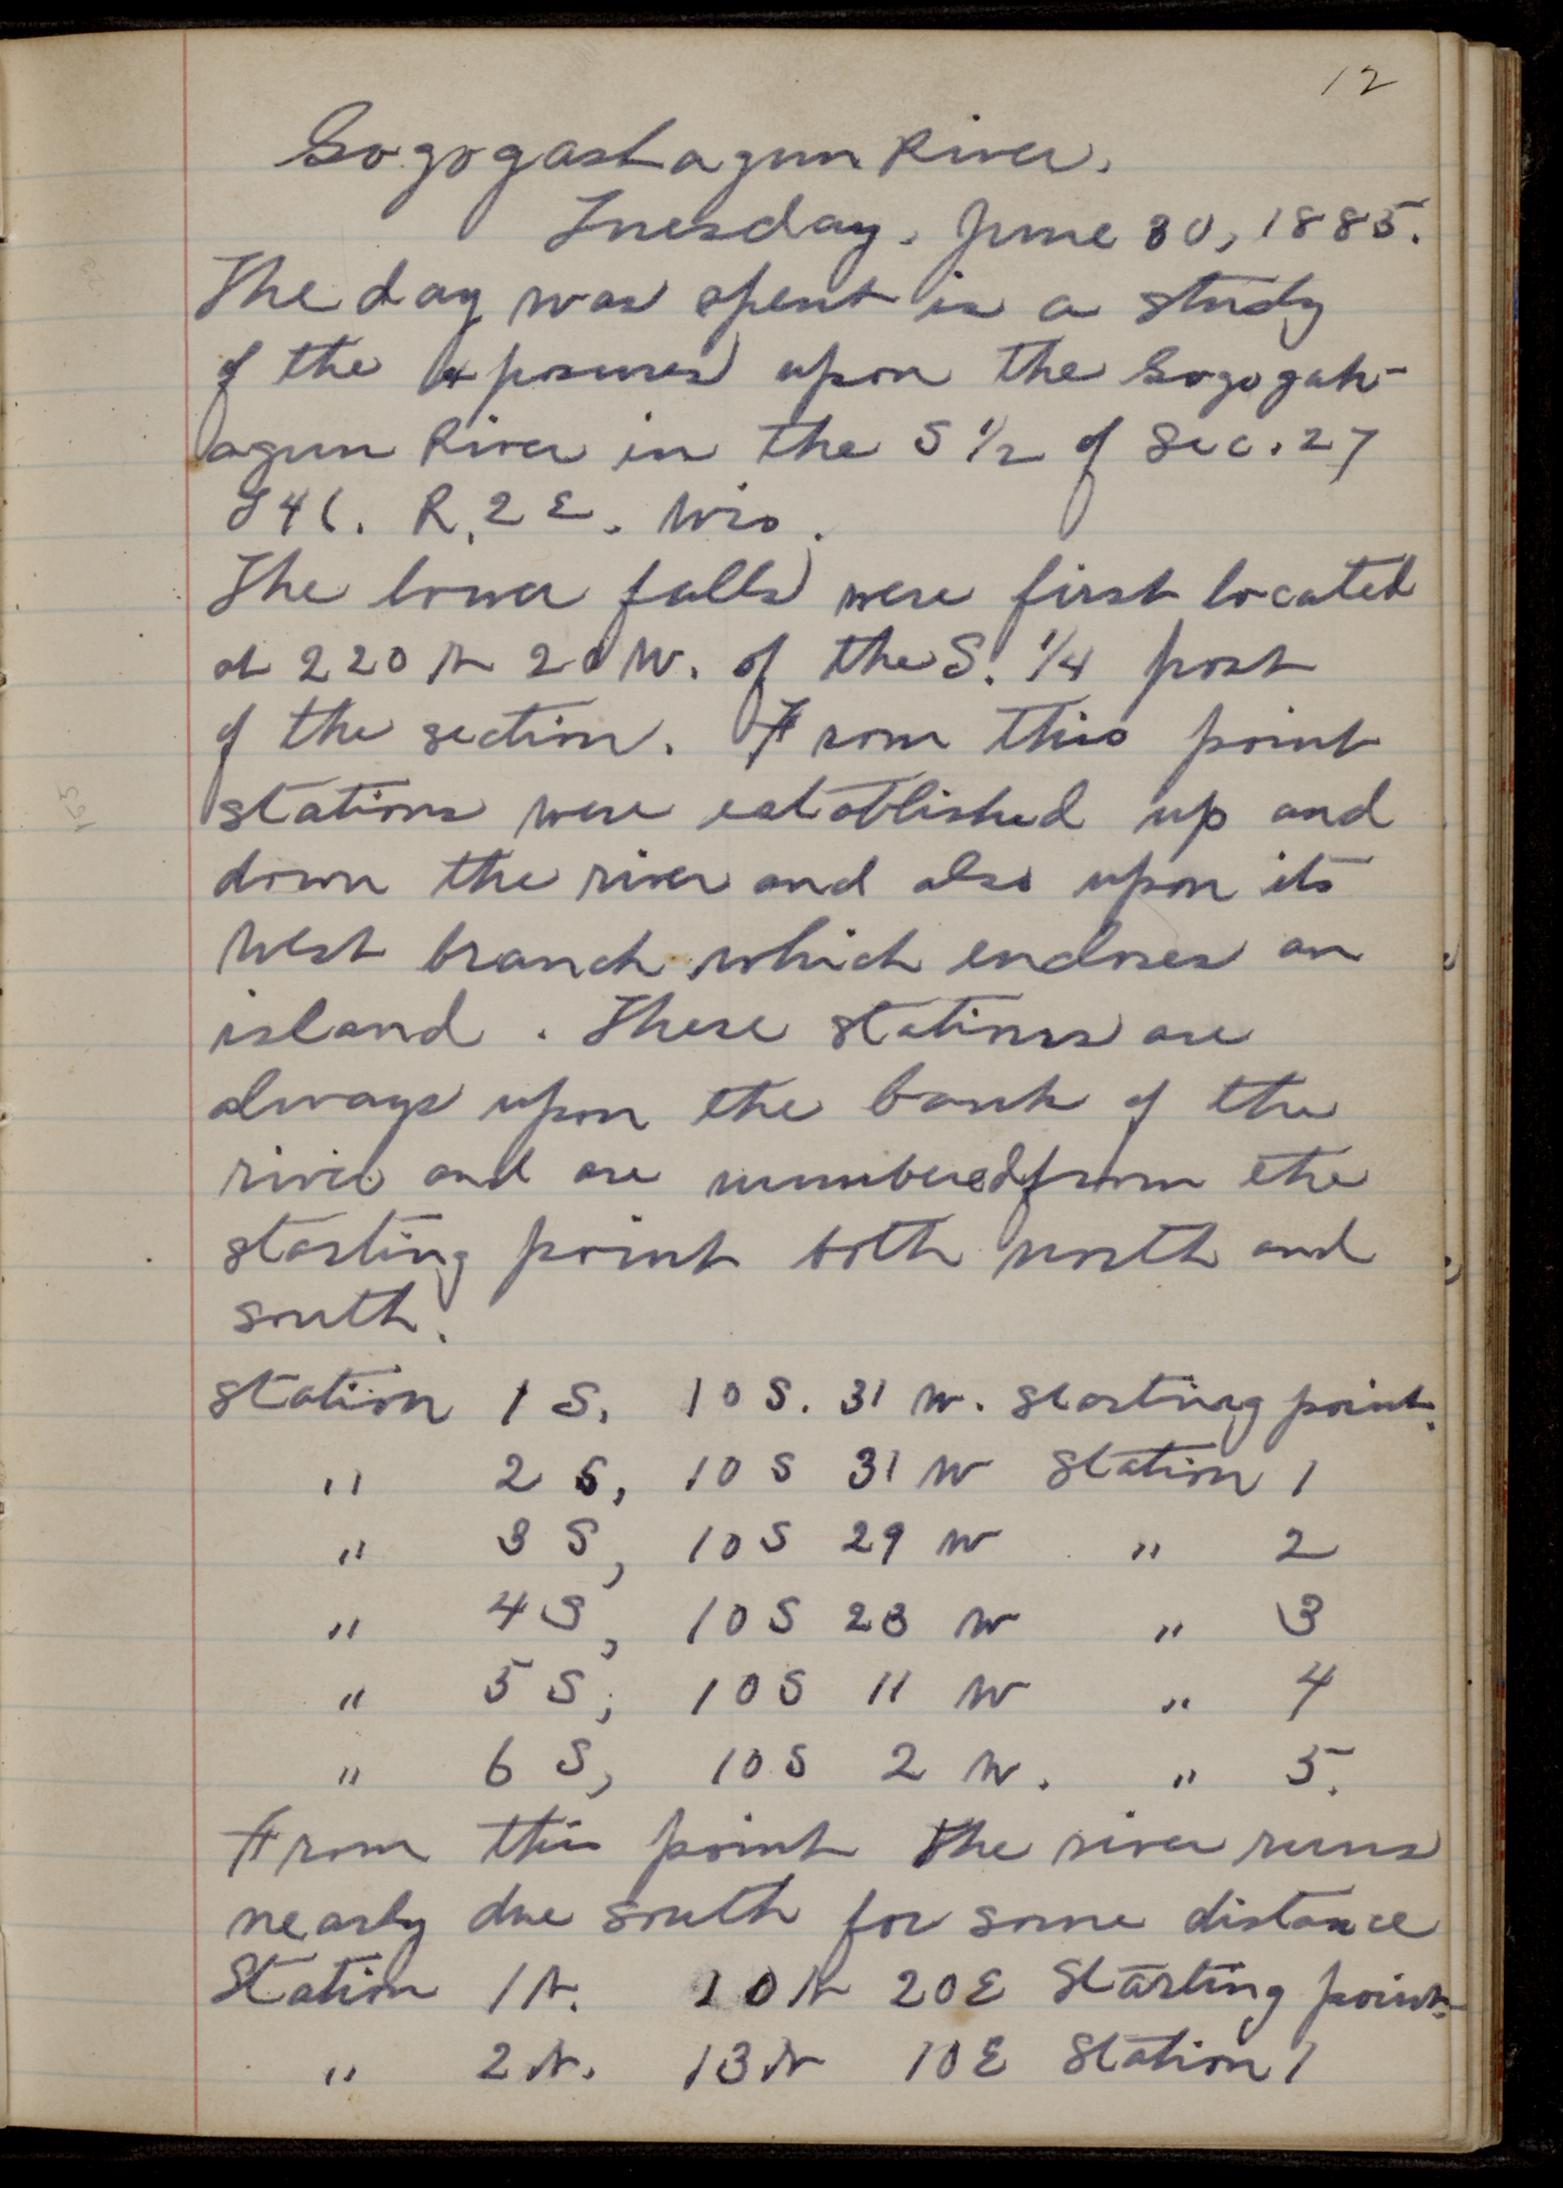 12
Gogogashagun River.
Tuesday, June 30, 1885.
The day was spent in a study
of the exposures upon the Gogogah-
agun River in the S 1/2 of Sec. 27
T 46. R. 2 E. Wis.
The lower falls were first located
at 220 N 20 W. of the S. 1/4 post
of the section. From this point
stations were established up and
down the river and also upon its
west branch which encloses an
island. These stations are
always upon the bank of the
river and are numbered from the
starting point both north and
south.
Station 1 S, 10 S. 31 W. Starting point.
" 2 S, 10 S 31 W Station 1
" 3 S, 10 S 29 W " 2
" 4 S, 10 S 23 W " 3
" 5 S, 10 S 11 W " 4
" 6 S, 10 S 2 W. " 5.
From this point the river runs
nearly due south for some distance
Station 1 N. 10 N 20 E Starting point.
" 2 N. 13 N 10 E Station 1